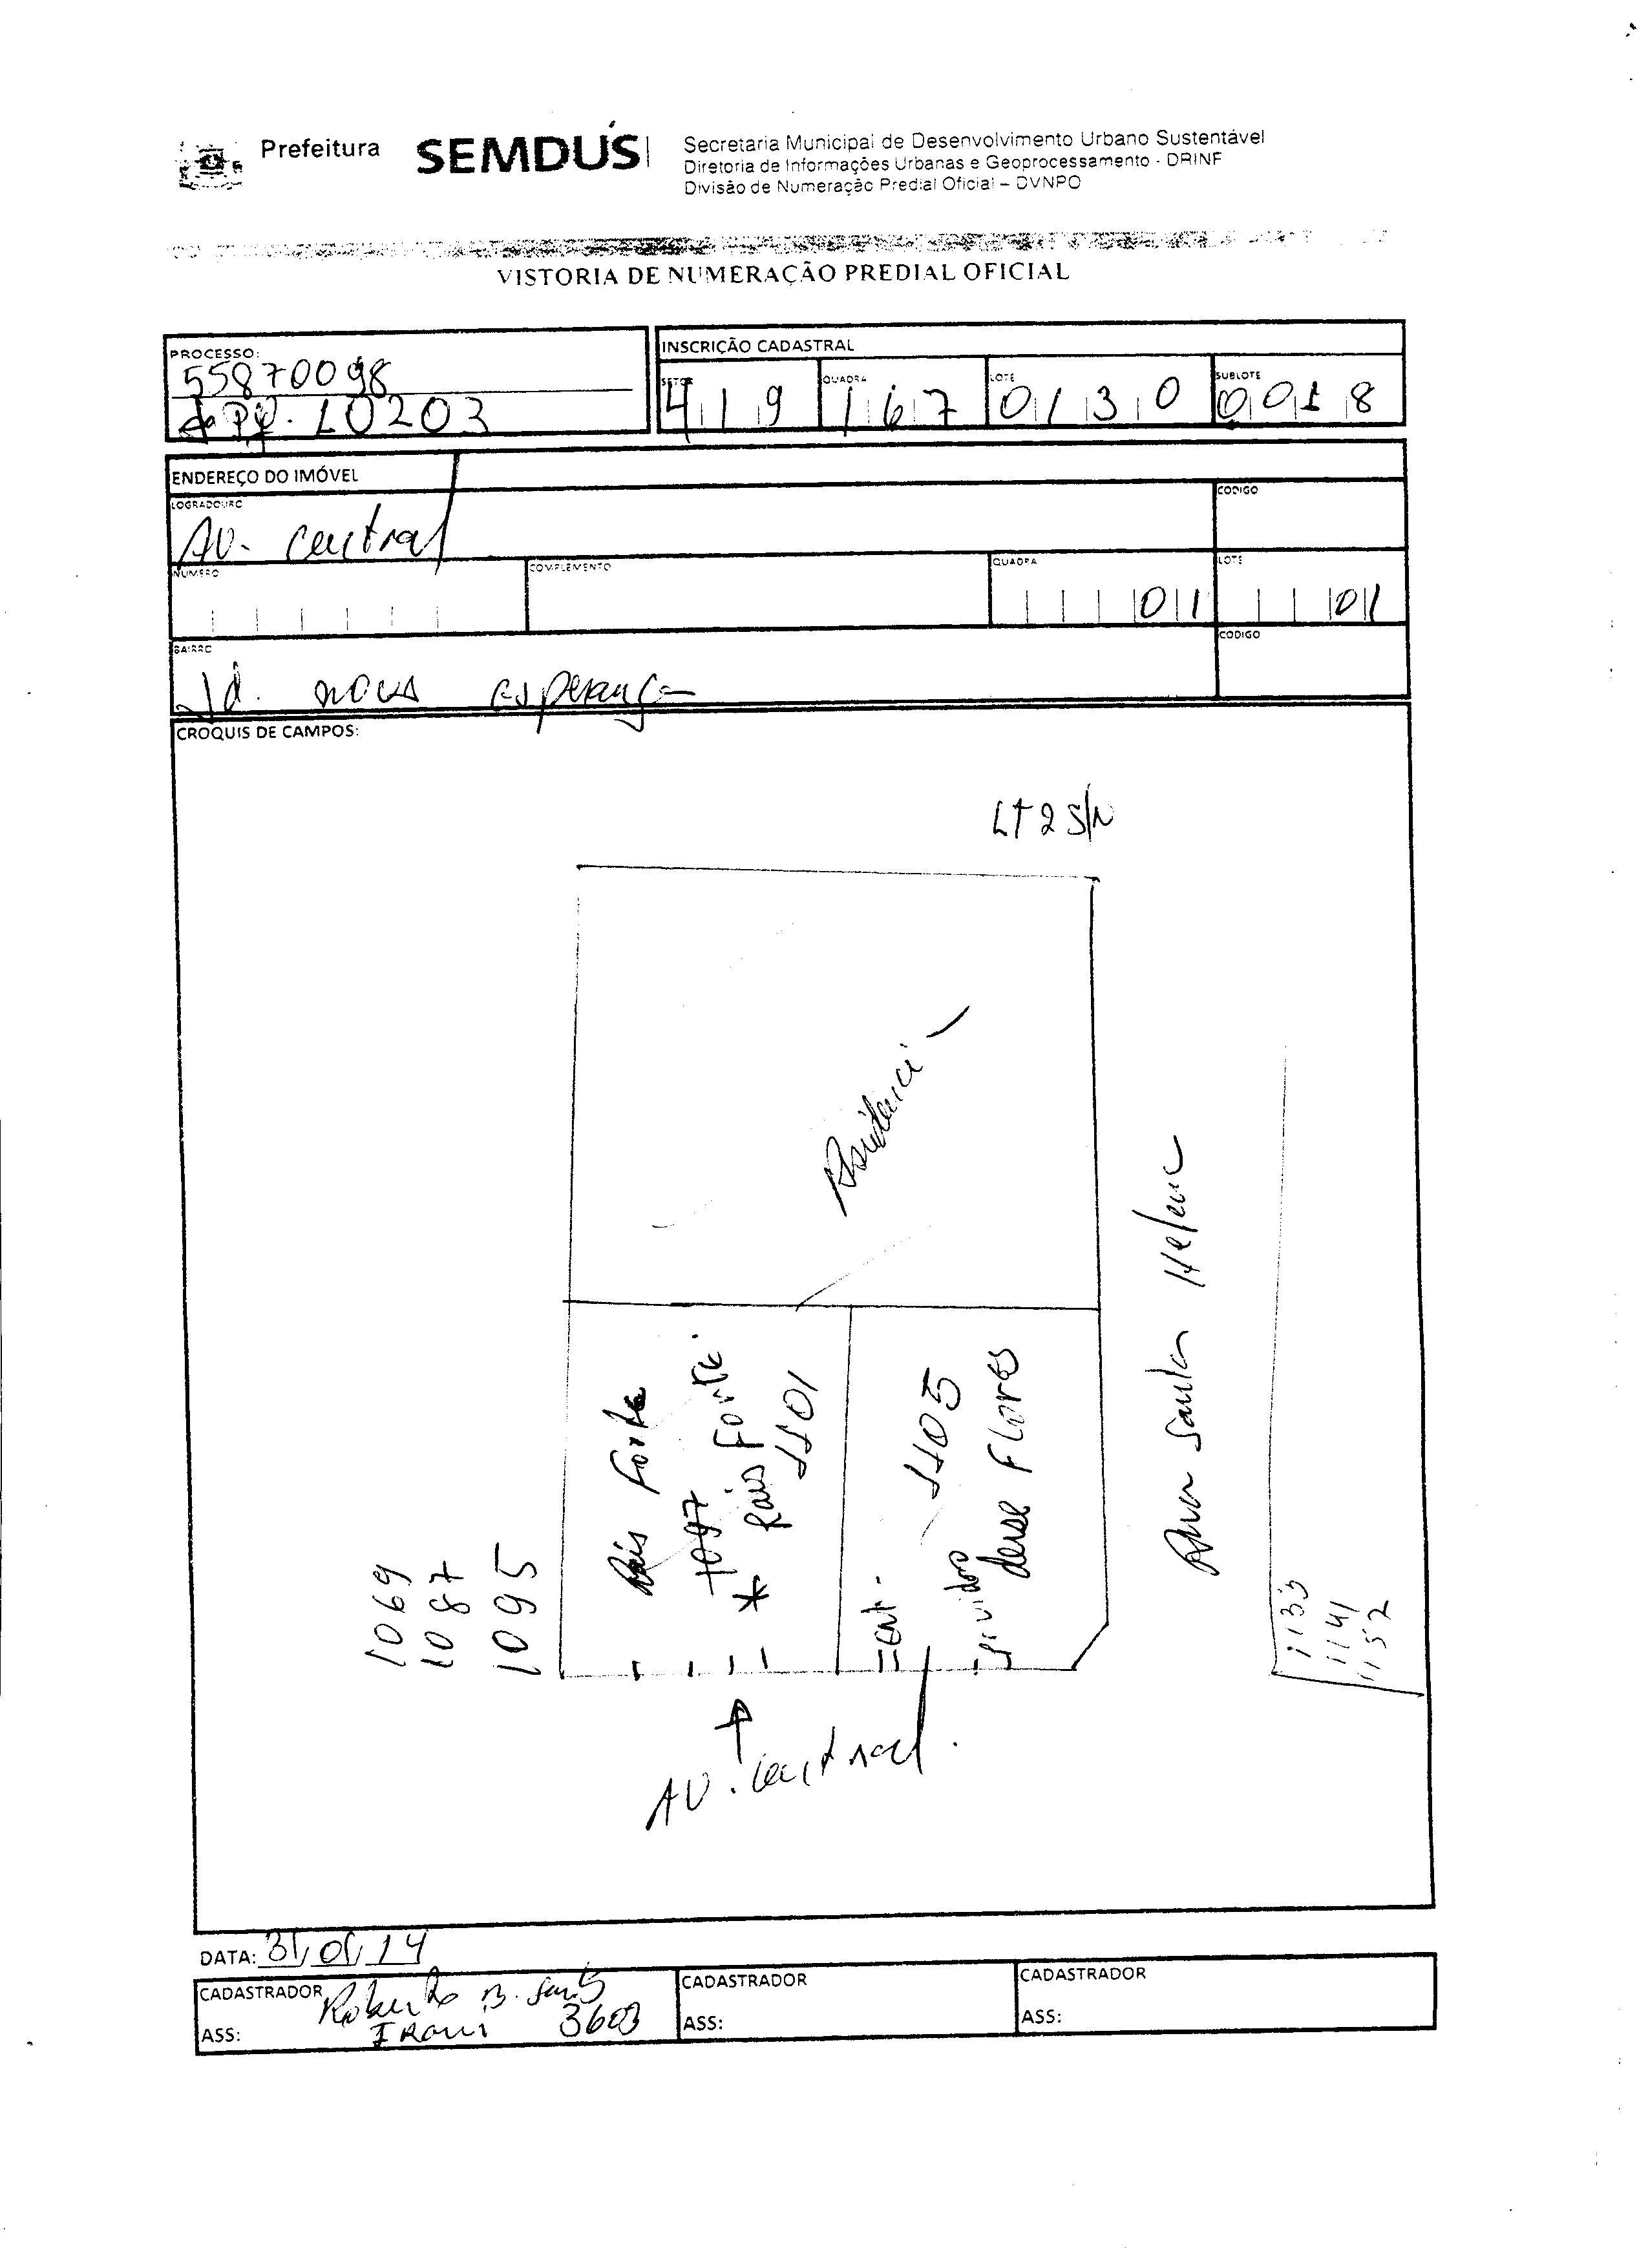 Prefeitura SEMDUS
Secretaria Municipal de Desenvolvimento Urbano Sustentável
Diretoria de Informações Urbanas e Geoprocessamento - DRINF
Divisão de Numeração Predial Oficial – DVNPO
VISTORIA DE NUMERAÇÃO PREDIAL OFICIAL
PROCESSO:
55870098
10203
INSCRIÇÃO CADASTRAL
SETOR QUADRA LOTE SUBLOTE
419 167 0130 0018
ENDEREÇO DO IMÓVEL
LOGRADOURO CODIGO
AV. Central
NUMERO COMPLEMENTO QUADRA LOTE
01 01
BAIRRO CODIGO
Jd. nova esperança
CROQUIS DE CAMPOS:
LT 2 S/N
Residenci
Rais Forte
1097
* Rais Forte
1101
1105
dese Flores
Rua Santa Helena
1069
1087
1095
1133
1141
1152
AV. Central.
DATA: 31/01/14
CADASTRADOR Roberto B. CADASTRADOR CADASTRADOR
ASS: 3603 ASS: ASS: